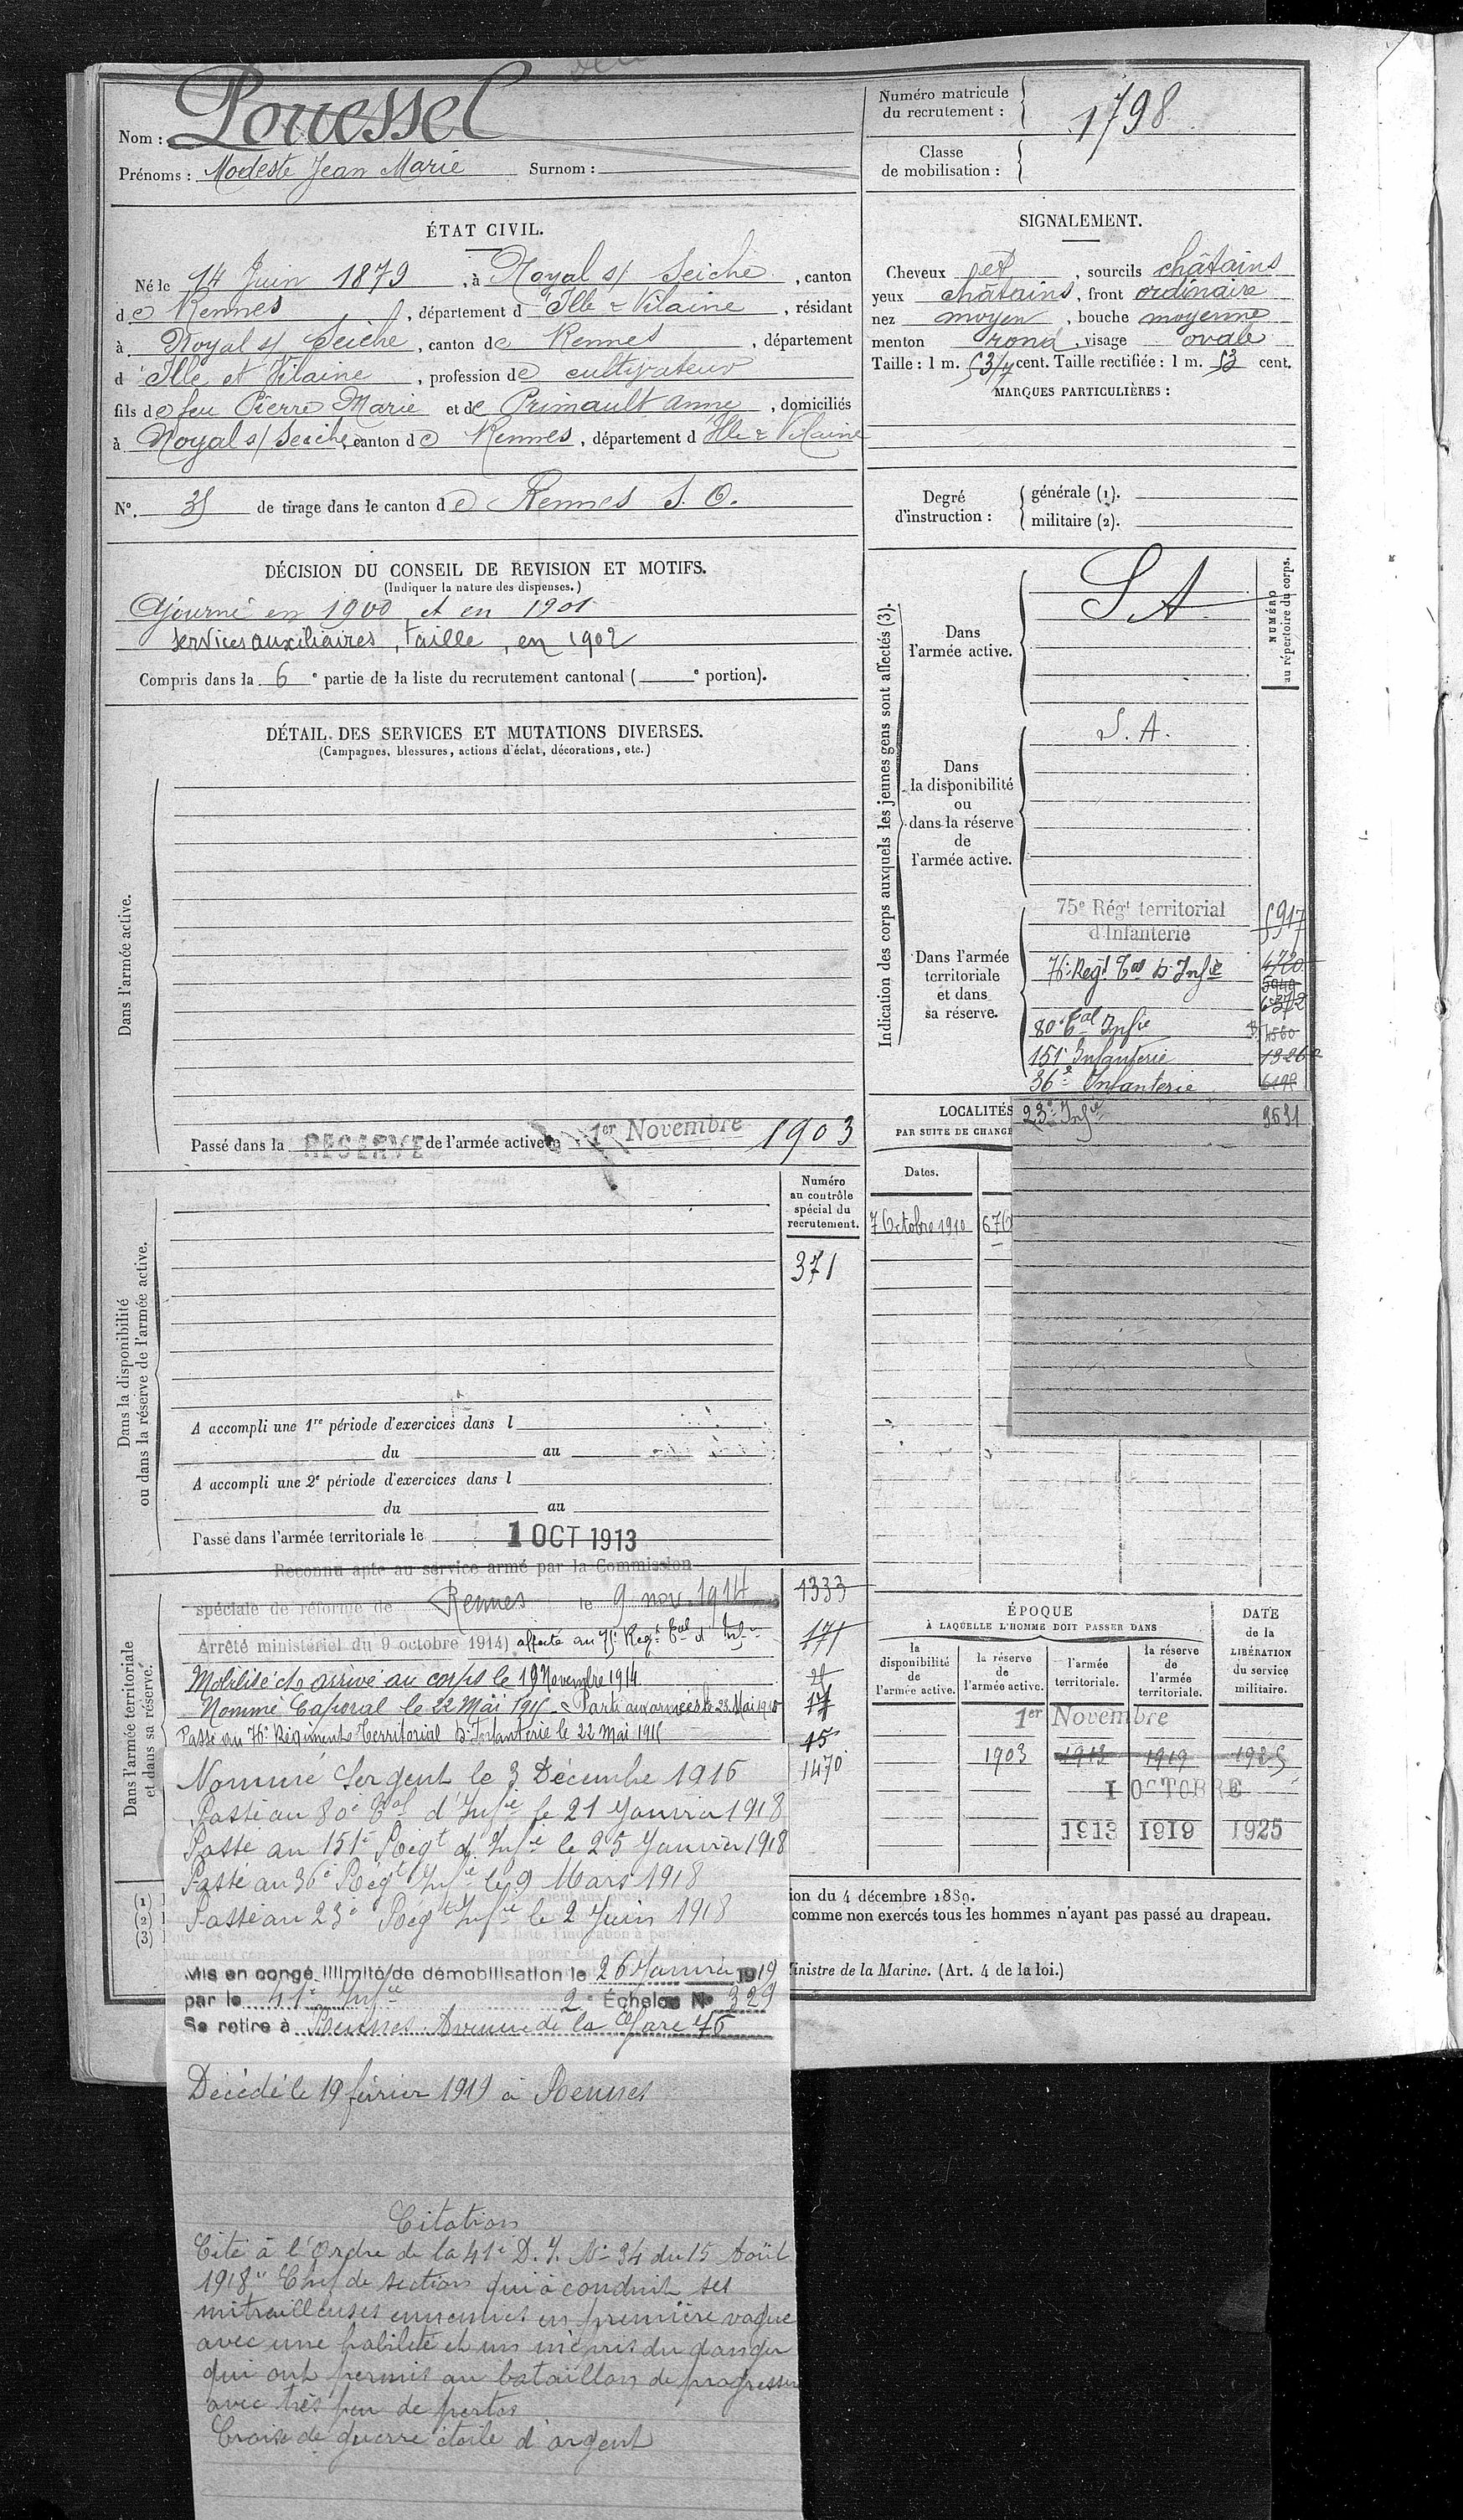 Nom : Pouessel
Prénoms : Modeste Jean Marie Surnom :
Numéro matricule
du recrutement : 1798
Classe
de mobilisation :
ÉTAT CIVIL.
Né le 14 Juin 1879, à Noyal s/ Seiche, canton
de Rennes, département d Ille & Vilaine, résidant
à Noyal s/ Seiche, canton de Rennes, département
d Ille et Vilaine, profession de cultivateur
fils de feu Pierre Marie et de Primault Anne, domiciliés
à Noyal s/ Seiche, canton de Rennes, département d Ille & Vilaine
N° 35 de tirage dans le canton de Rennes S. O.
SIGNALEMENT.
Cheveux et, sourcils châtains
yeux châtains, front ordinaire
nez moyen, bouche moyenne
menton rond, visage ovale
Taille : 1 m. 53/4 cent. Taille rectifiée : 1 m. 53 cent.
MARQUES PARTICULIÈRES :
Degré
d'instruction :
générale (1).
militaire (2).
DÉCISION DU CONSEIL DE REVISION ET MOTIFS.
(Indiquer la nature des dispenses.)
Ajourné en 1900 et en 1901
Services auxiliaires, taille, en 1902
Compris dans la 6e partie de la liste du recrutement cantonal ( e portion).
DÉTAIL DES SERVICES ET MUTATIONS DIVERSES.
(Campagnes, blessures, actions d'éclat, décorations, etc.)
Dans l'armée active.
Passé dans la RESERVE de l'armée active le 1er Novembre 1903
Indication des corps auxquels les jeunes gens sont affectés (3).
NUMÉRO
au répertoire du corps.
Dans
l'armée active.
S A
Dans
la disponibilité
ou
dans la réserve
de
l'armée active.
S. A.
Dans l'armée
territoriale
et dans
sa réserve.
75e Régt territorial
d'Infanterie
5917
76e Régt Tal d'Infie
4720
80e Tal Infie
4560
151e Infanterie
36e Infanterie
23e Infie
LOCALITÉS
PAR SUITE DE CHANGE
Dates.
7 Octobre 1910
Dans la disponibilité
ou dans la réserve de l'armée active.
Numéro
au contrôle
spécial du
recrutement.
371
A accompli une 1re période d'exercices dans l
du au
A accompli une 2e période d'exercices dans l
du au
Passé dans l'armée territoriale le 1 OCT 1913
Dans l'armée territoriale
et dans sa réserve.
Reconnu apte au service armé par la Commission
spéciale de réforme de Rennes le 9 nov. 1914
1333
Arrêté ministériel du 9 octobre 1914) affecté au 75e Régt Tal d'Infie
171
Mobilisé et arrivé au corps le 19 Novembre 1914.
Nommé Caporal le 22 Mai 1915. Parti aux armées le 23 Mai 1915
Passé au 76e Régiment Territorial d'Infanterie le 22 mai 1915
15
1470
Nommé Sergent le 3 Décembre 1916
Passé au 80e Tal d'Infie le 21 Janvier 1918
Passé au 151e Régt d'Infie le 25 Janvier 1918
Passé au 36e Régt Infie le 9 Mars 1918
Passé au 23e Régt Infie le 2 Juin 1918
Mis en congé illimité de démobilisation le 26 Janvier 1919
par le 41e Infie 2e Échelon No 329
Se retire à Rennes Avenue de la Gare 46
Décédé le 19 février 1919 à Rennes
ÉPOQUE
À LAQUELLE L'HOMME DOIT PASSER DANS
DATE
de la
LIBÉRATION
du service
militaire.
la
disponibilité
de
l'armée active.
la réserve
de
l'armée active.
l'armée
territoriale.
la réserve
de
l'armée
territoriale.
1er Novembre
1903 1913 1919 1925
1 OCTOBRE
1913 1919 1925
(1)
(2)
(3)
ion du 4 décembre 1889.
comme non exercés tous les hommes n'ayant pas passé au drapeau.
inistre de la Marine. (Art. 4 de la loi.)
Citation
Cité à l'Ordre de la 41e D. I. No 34 du 15 Août
1918 "Chef de section qui a conduit ses
mitrailleuses ennemies en première vague
avec une habileté et un mépris du danger
qui ont permis au bataillon de progresser
avec très peu de pertes
Croix de guerre étoile d'argent